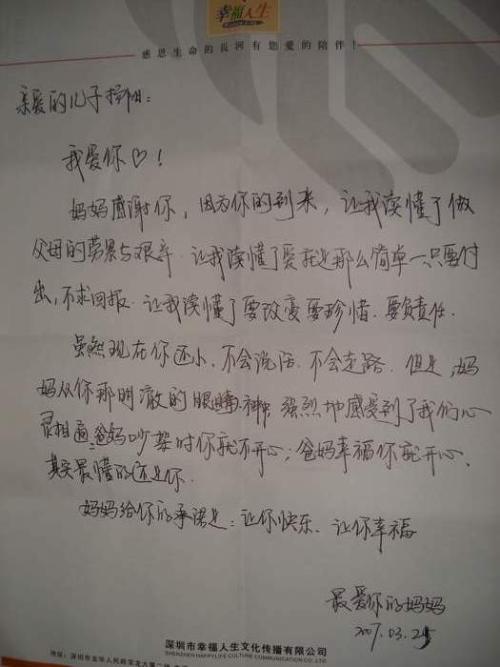 幸福人生
感恩生命的長河有您愛的陪伴!
亲爱的儿子
我爱你♡!
妈妈感谢你,因为你的到来,让我读懂了做
父母的劳累与艰辛.让我读懂了爱就是那么简单—只要付
出,不求回报.让我读懂了要改变要珍惜.要负责任.
虽然现在你还小.不会说话.不会走路.但是,妈
妈从你那明澈的眼睛神 强烈地感受到了我们心
灵相通.爸妈吵架时你就不开心;爸妈幸福你就开心.
其实最懂的还是你.
妈妈给你的承诺是:让你快乐、让你幸福
最爱你的妈妈
2007.03.25
深圳市幸福人生文化传播有限公司
SHENZHEN HAPPYLIFE CULTURE COMMUNICATION CO.,LTD